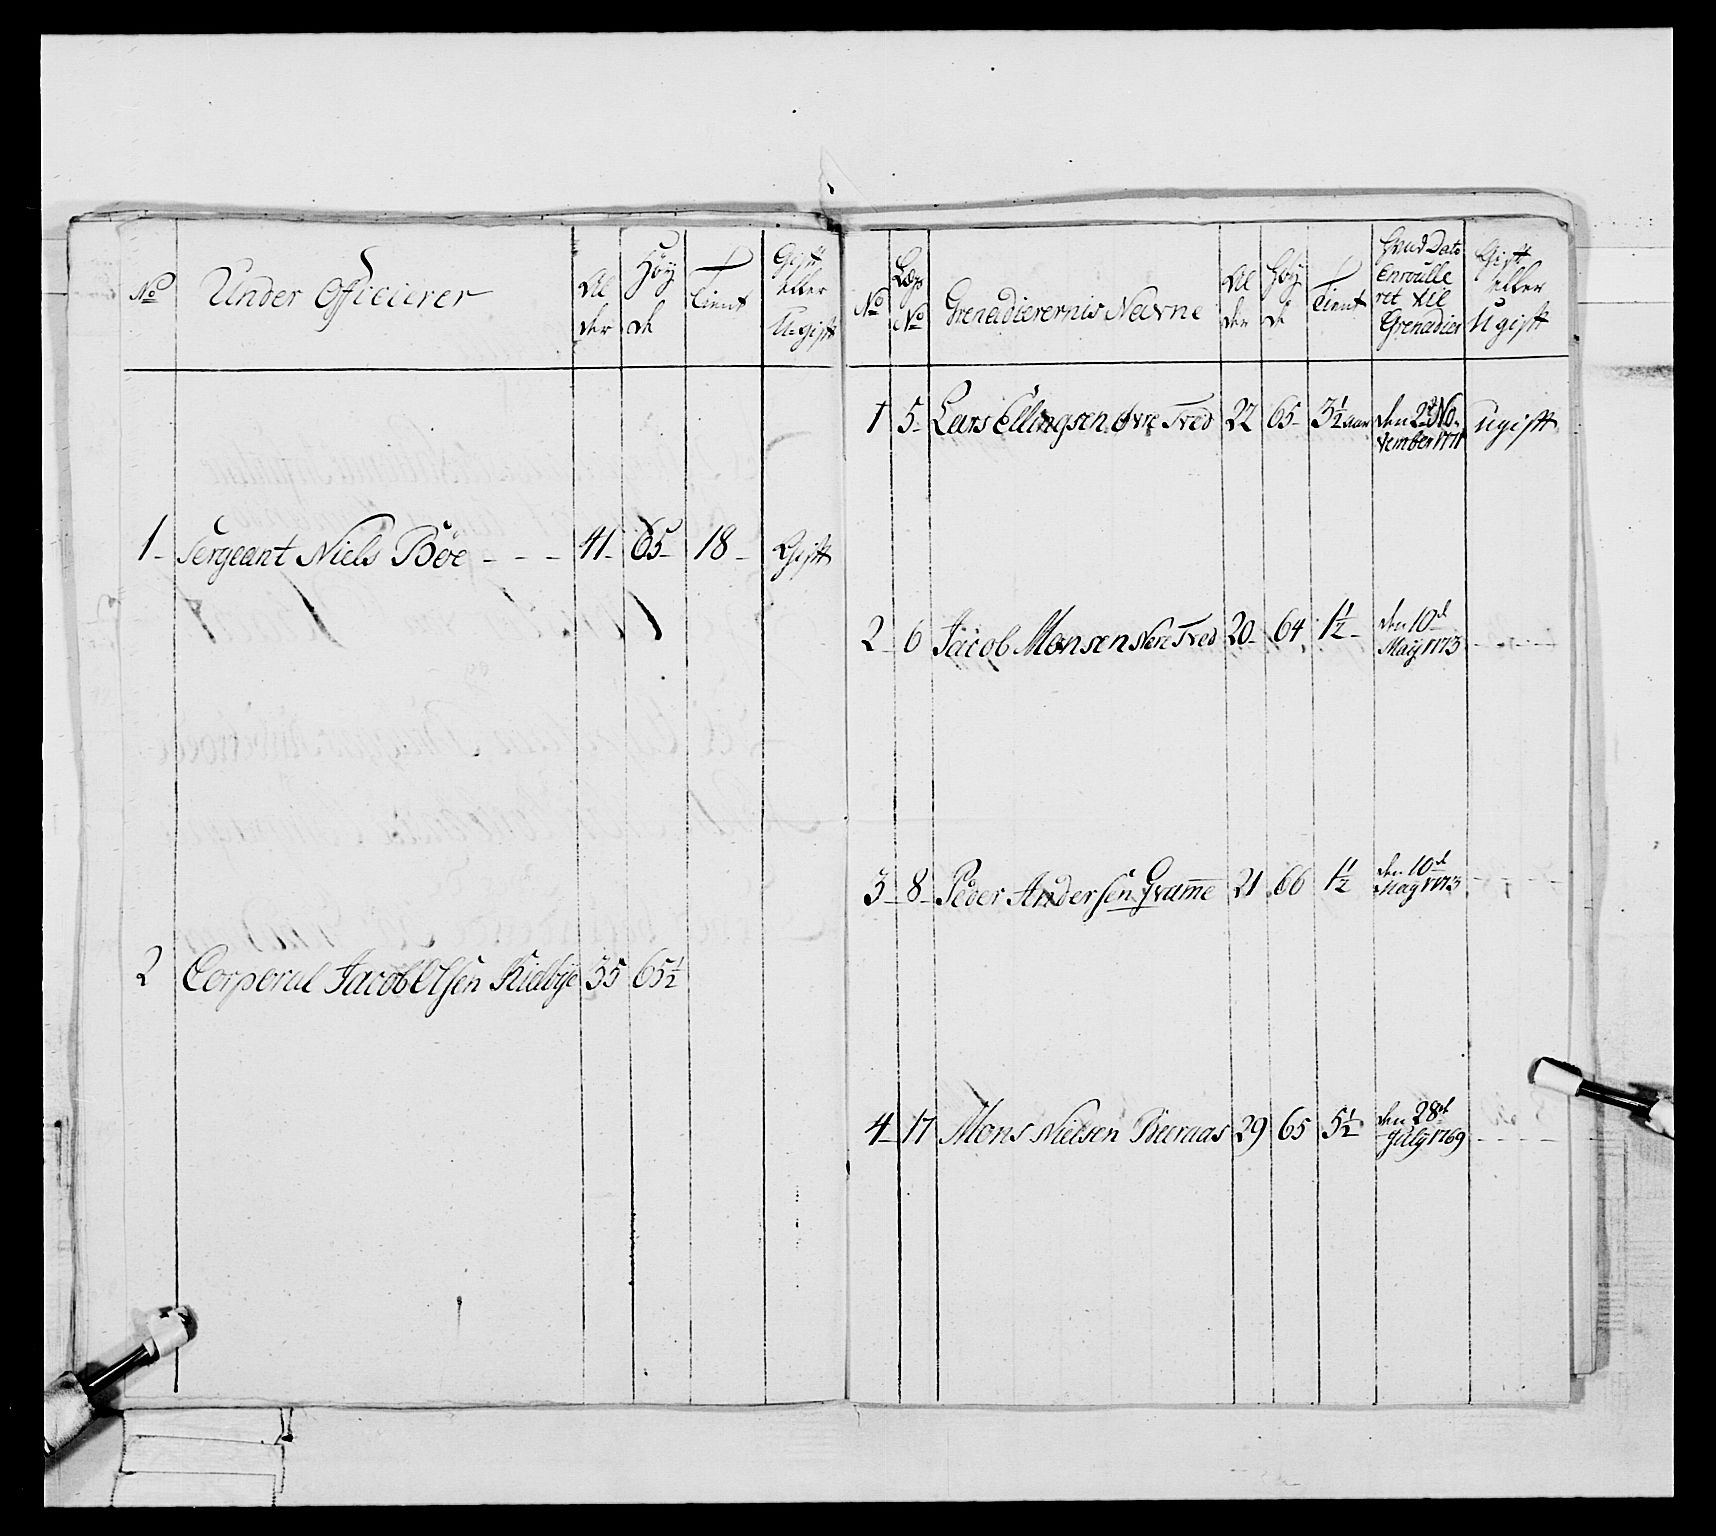 No Under Officierer Al der Höy de Tient Gift eller Ugift
1 Sergeant Niels Böe 41 65 18 Gift
2 Corporal Jacob Olsen Kidbye 35 65½
No Læg No Grenadierernis Navne Al der Höy de Tient Hvad Dato Enroulle ret til Grenadier Gift eller Ugift
1 5 Lars Ellingsen Øvre Tved 22 65 3½ aar den 2d No
vember 1771 Ugift
2 6 Jacob Monsen Nere Tved 20 64 1½ den 10d
May 1773
3 8 Peder Andersen Gramme 21 66 1½ den 10d
May 1773
4 17 Mons Nielsen 29 65 5½ den 28d
July 1769